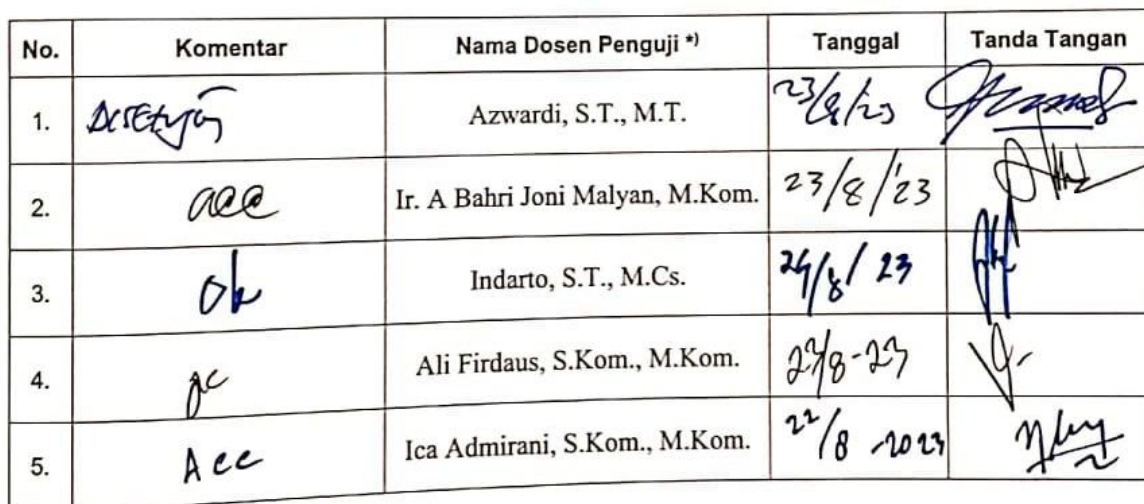 No. Komentar Nama Dosen Penguji *) Tanggal Tanda Tangan
1. Disetujui Azwardi, S.T., M.T. 23/8/23
2. acc Ir. A Bahri Joni Malyan, M.Kom. 23/8/'23
3. Ok Indarto, S.T., M.Cs. 24/8/23
4. Ali Firdaus, S.Kom., M.Kom. 23/8-23
5. Acc Ica Admirani, S.Kom., M.Kom. 22/8-2023